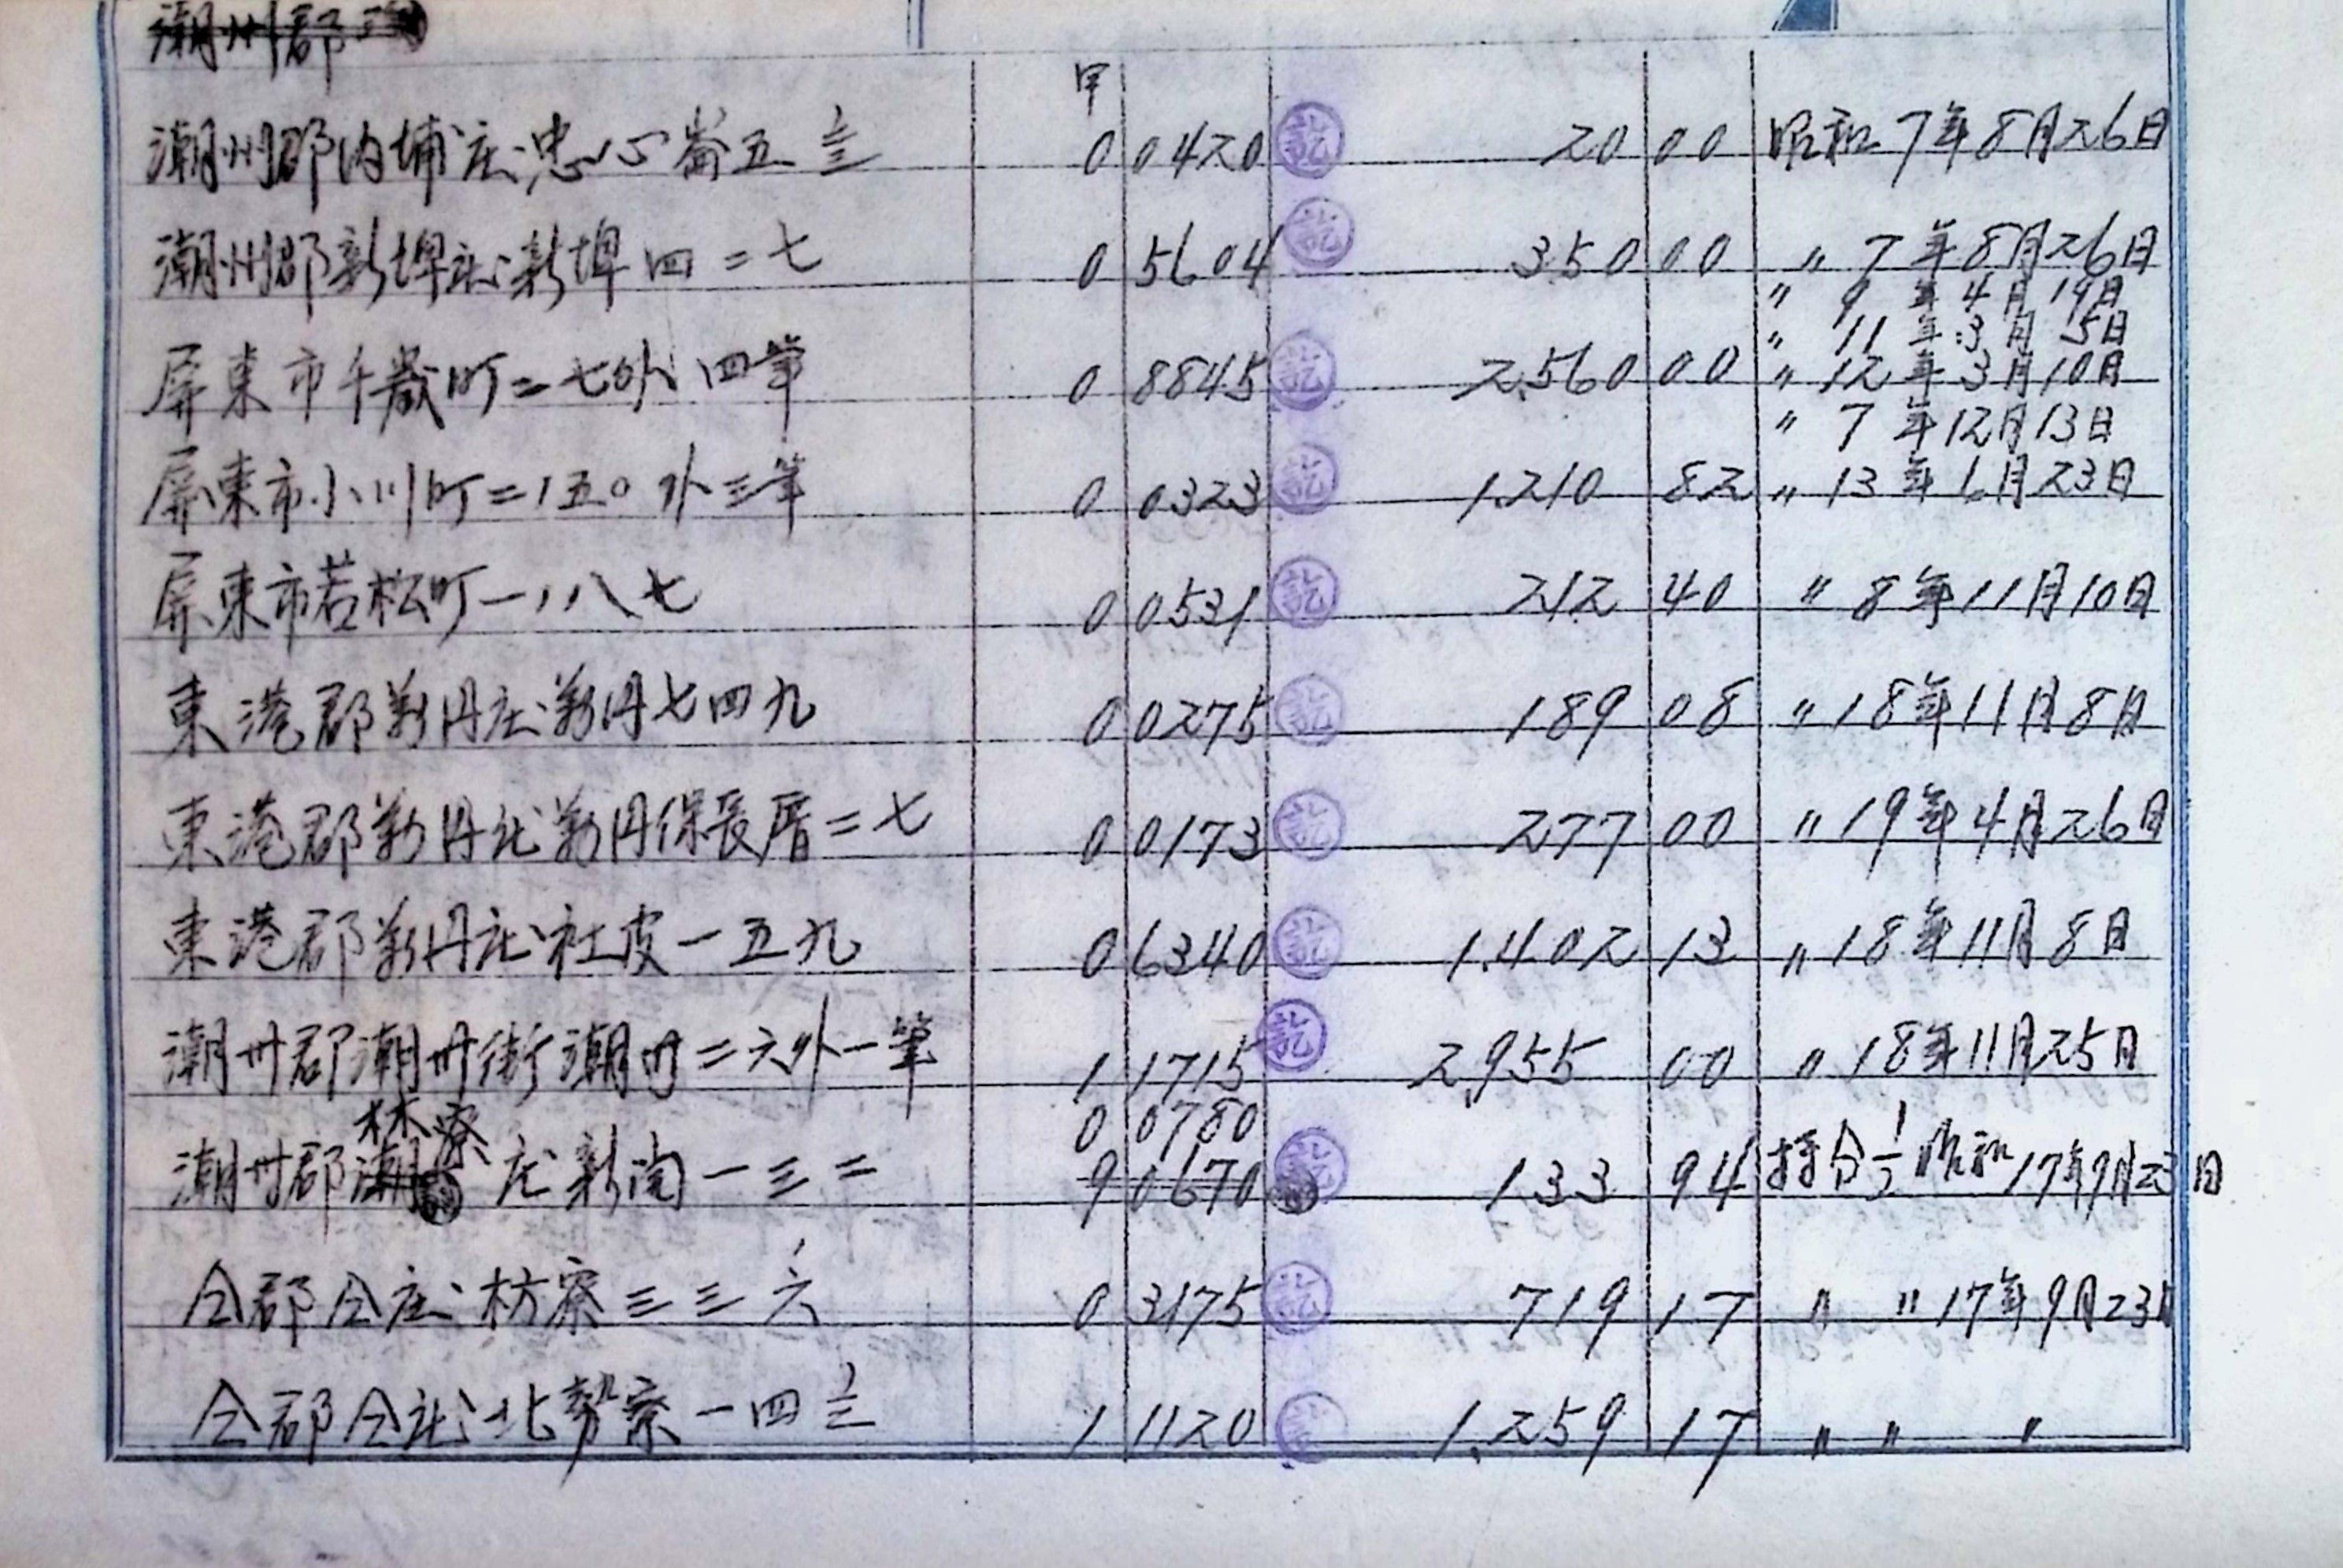 潮州郡
甲
潮州郡内埔庄忠心崙五三 0 0420 訖 20 00 昭和7年8月26日
潮州郡新埤庄新埤四二七 0 5604 訖 350 00 〃7年8月26日
〃9年4月19日
〃11年3月5日
屏東市千歳町二七外四筆 0 8845 訖 2,560 00 〃12年3月10日
〃7年12月13日
屏東市小川町二ノ五〇外三筆 0 0323 訖 1.210 82 〃13年6月23日
屏東市若松町一ノ八七 0 0531 訖 212 40 〃8年11月10日
東港郡萬丹庄萬丹七四九 0 0275 訖 189 08 〃18年11月8日
東港郡萬丹庄萬丹保長厝二七 0 0173 訖 277 00 〃19年4月26日
東港郡萬丹庄社皮一五九 0 6340 訖 1.402 13 〃18年11月8日
潮州郡潮州街潮州二六外一筆 1 1715 訖 2,955 00 〃18年11月25日
林寮 0 0780
潮州郡潮庄新南一三二 9 0670 訖 133 94 持分 昭和17年9月23日
仝郡仝庄枋寮三三六 0 3175 訖 719 17 〃 〃17年9月23日
仝郡仝庄北勢寮一四三 1 1120 訖 1.259 17 〃 〃 〃